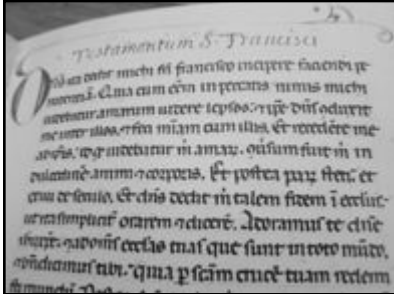 Testamentum S. Francisci
ita dedit michi fri francisco incipere faciendi pe
Quia cum eēm in peccatis nimis michi
videbatur amarum videre leprosos. et ipe dñs
me inter illos. et feci miam cum illis. Et recedēte me
ab ipīs. id q̄ videbatur m̄ amaꝝ. cōūsum fuit m̄ in
dulcedinē animi et corporis. Et postea paꝝ steti. et
exiui de seculo. Et dn̄s dedit m̄ talem fidem ī eccliis.
ut ita simplicit orarem et dicerē. Adoramus te dn̄e
et ad omīs ecclias tuas que sunt in toto mūdo.
et bn̄dicimus tibi. quia p scām crucē tuam redem